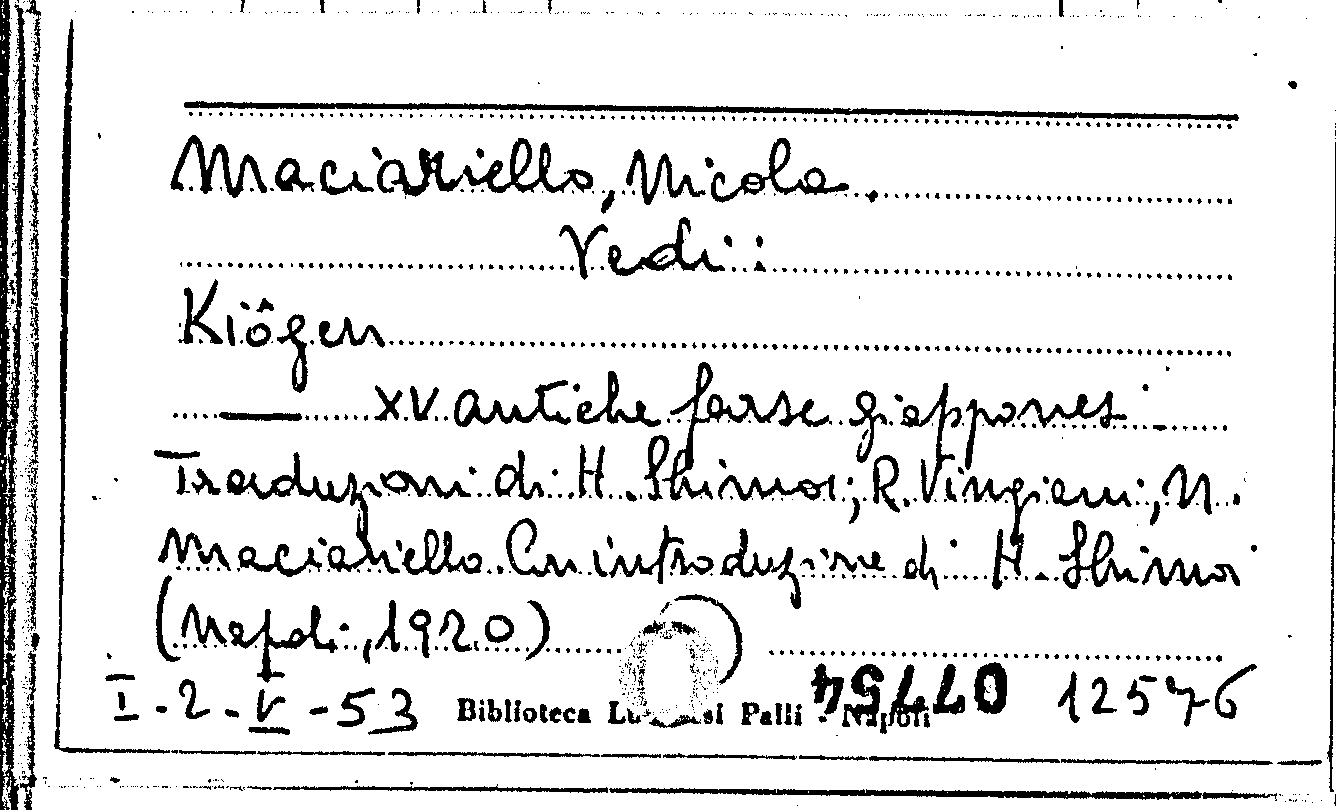 Maciariello, Nicola.
Vedi:
Kiôgen
— XV antiche farse giapponesi -
Traduzioni di H. Shimoi, R. Vingiani, N.
Maciariello. Con introduzione di H. Shimoi
(Napoli, 1920)
I-2-V-53 Biblioteca Palli - Napoli 12576